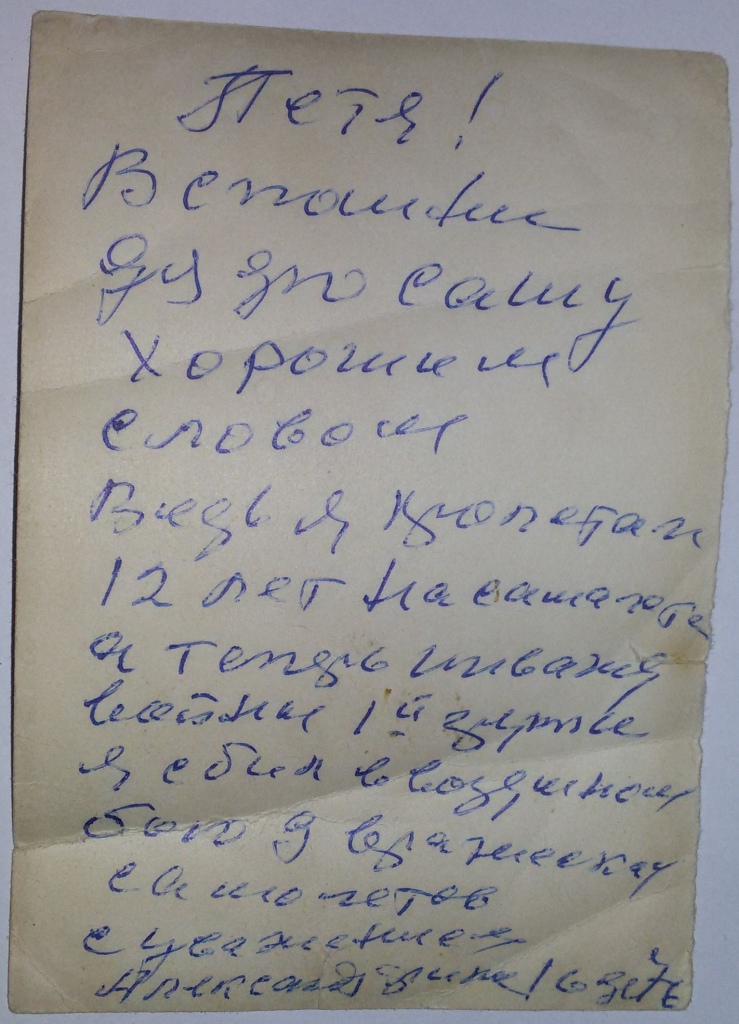 Петя!
Вспомни
дядю Сашу
хорошим
словом
Ведь я пролетал
12 лет на самолете
а теперь инвалид
войны 1й группы
я сбил в воздушном
бою 9 вражеских
самолетов
с уважением
Александр